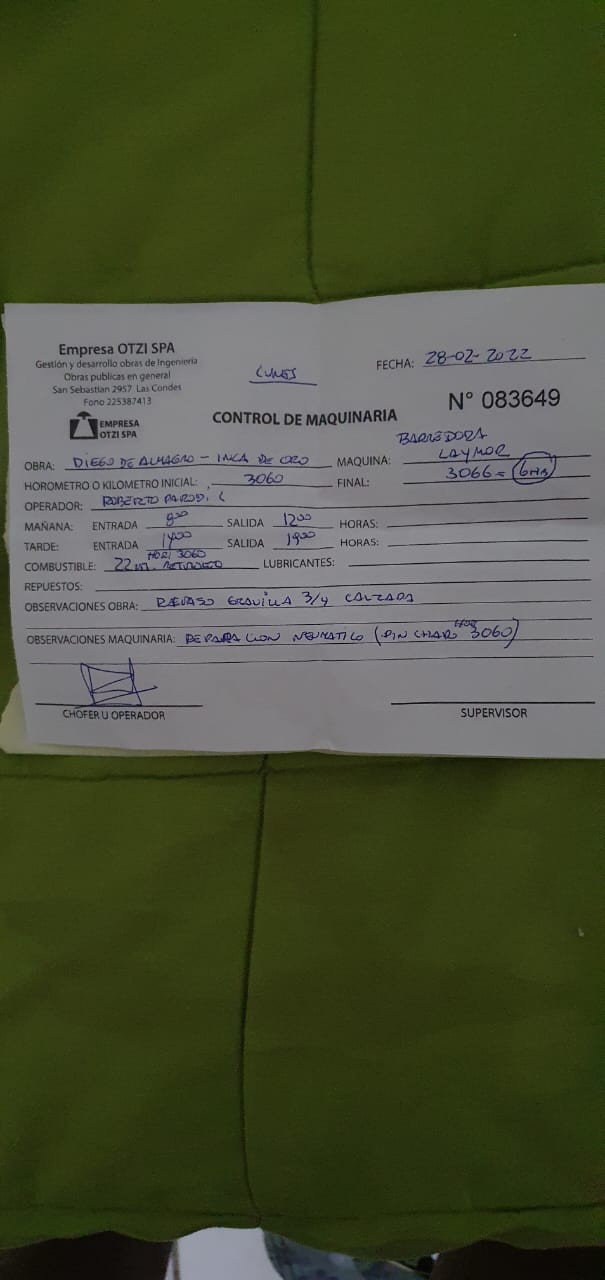 Empresa OTZI SPA
Gestión y desarrollo obras de Ingeniería
Obras publicas en general
San Sebastian 2957 Las Condes
Fono 225387413
EMPRESA
OTZI SPA
LUNES
FECHA: 28-02-2022
N° 083649
CONTROL DE MAQUINARIA
OBRA: DIEGO DE ALMAGRO - INCA DE ORO MAQUINA: BARREDORA LAYMOR
HOROMETRO O KILOMETRO INICIAL: 3060 FINAL: 3066 = 6Hrs
OPERADOR: ROBERTO PARODI C
MAÑANA: ENTRADA 800 SALIDA 1200 HORAS:
TARDE: ENTRADA 1400 SALIDA 1900 HORAS:
COMBUSTIBLE: 22 Lt. PETROLEO HOR: 3060 LUBRICANTES:
REPUESTOS:
OBSERVACIONES OBRA: REPASO GRAVILLA 3/4 CALZADA
OBSERVACIONES MAQUINARIA: REPARACION NEUMATICO (PINCHADO HOR 3060)
CHOFER U OPERADOR
SUPERVISOR